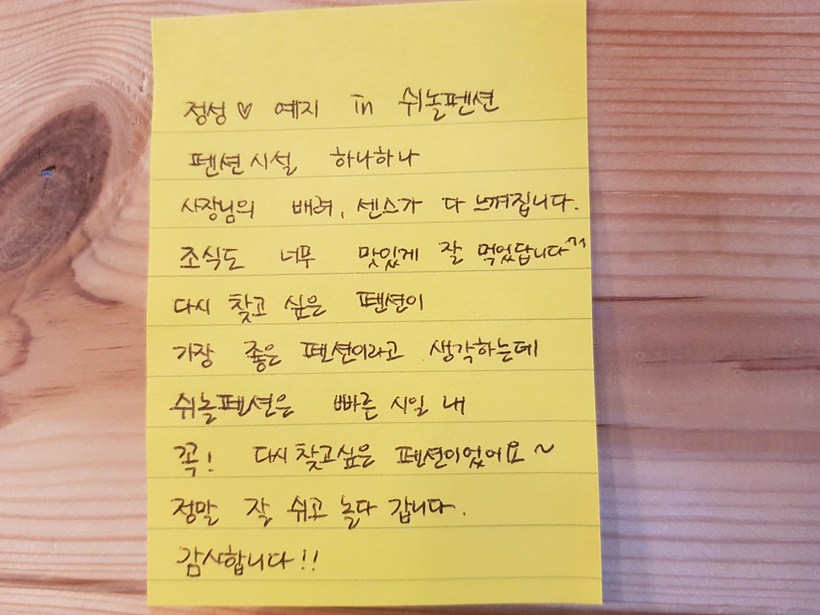 정성♡ 예지 in 쉬놀펜션
펜션시설 하나하나
사장님의 배려, 센스가 다 느껴집니다.
조식도 너무 맛있게 잘 먹었답니다ㅋㅋ
다시 찾고 싶은 펜션이
가장 좋은 펜션이라고 생각하는데
쉬놀펜션은 빠른 시일 내
꼭! 다시 찾고싶은 펜션이었어요~
정말 잘 쉬고 놀다 갑니다.
감사합니다!!